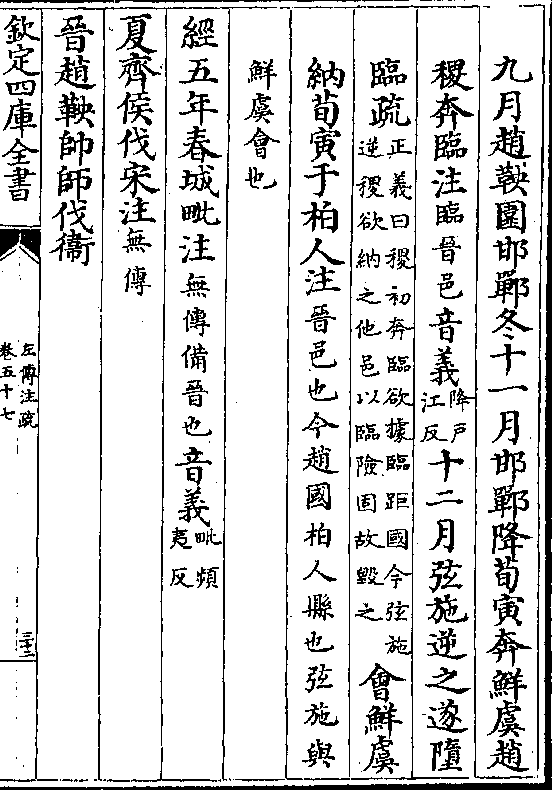 九月趙鞅圍邯鄲冬十一月邯鄲降荀寅奔鮮虞趙
稷奔臨注臨晉邑音義降戸江反十二月弦施逆之遂墮
臨疏正義曰稷初奔臨欲據臨距國今弦施逆稷欲納之他邑以臨險固故毀之會鮮虞
納荀寅于柏人注晉邑也今趙國柏人縣也弦施與
鮮虞會也
經五年春城毗注無傳備晉也音義毗頻夷反
夏齊侯伐宋注無傳
晉趙鞅帥師伐衞
欽定四庫全書
左傳注疏
卷五十七
三十二